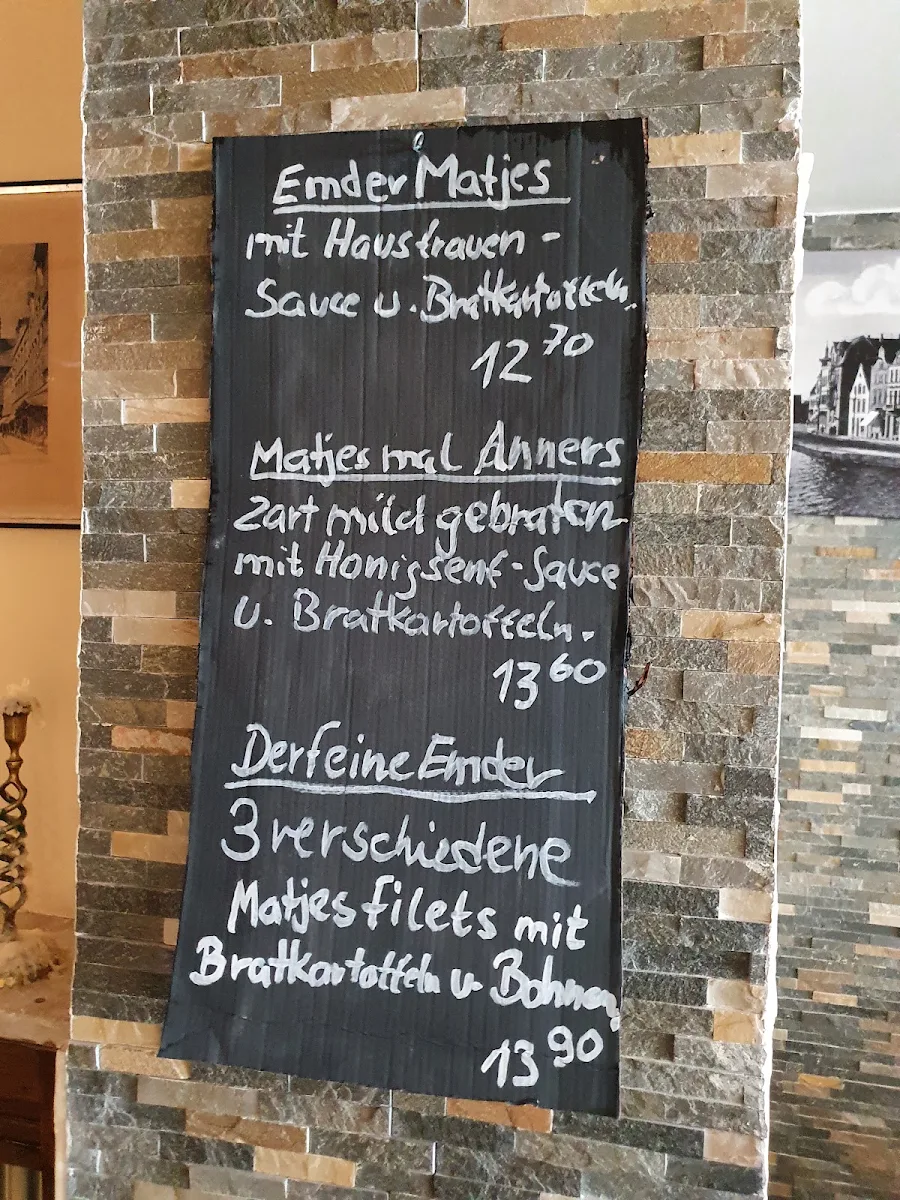 Emder Matjes
mit Hausfrauen-
Sauce u. Bratkartoffeln.
12 70
Matjes mal Anners
zart mild gebraten
mit Honigsenf-Sauce
u. Bratkartoffeln.
13 60
Der feine Emder
3 verschiedene
Matjesfilets mit
Bratkartoffeln u. Bohnen
13 90